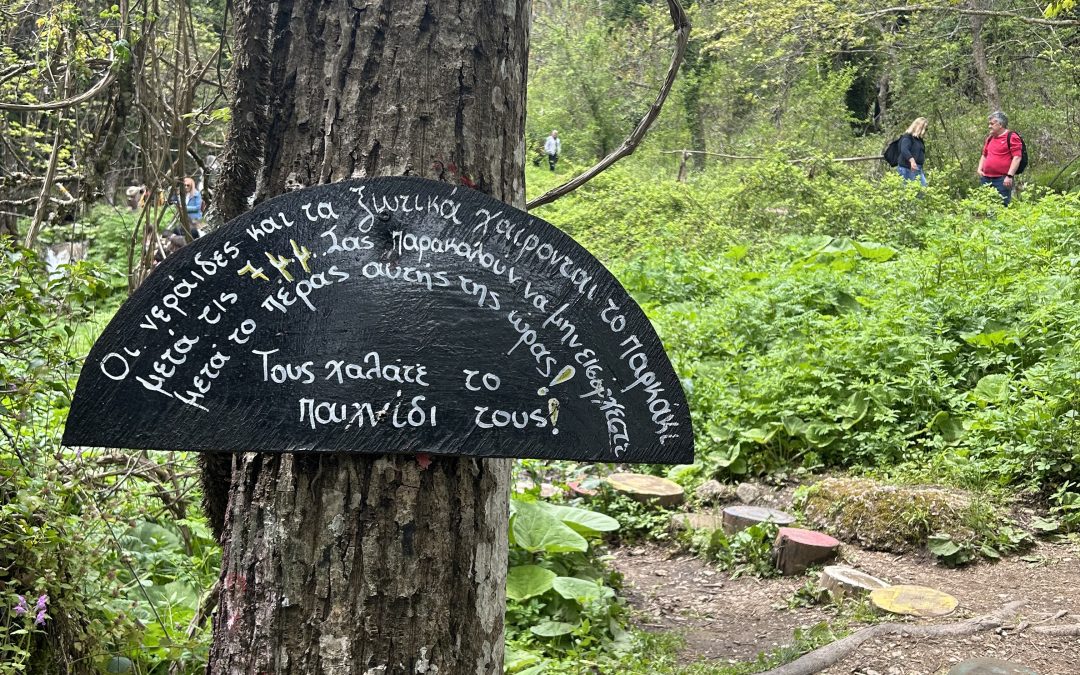 Οι νεράιδες και τα ξωτικά χαίρονται το παρκάκι
μετά τις 7 μμ. Σας παρακαλούν να μην εισέρχεστε
μετά το πέρας αυτής της ώρας!
Τους χαλάτε το
παιχνίδι τους!